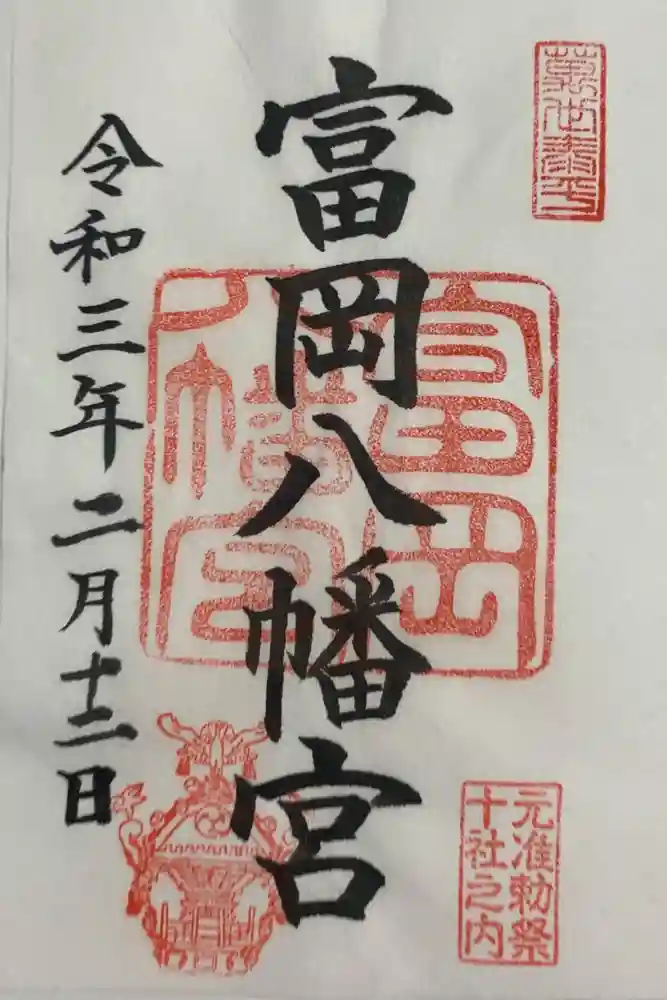 萬世泰平
元准勅祭
十社之内
富岡八幡宮
富岡
八幡宮
令和三年二月十二日